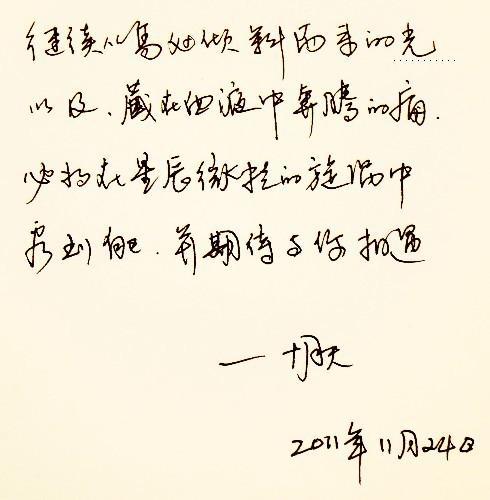 继续以她倾斜而来的光
以及、藏在血液中奔腾的痛.
必将在星辰的旋涡中
并期待与你相遇
一 十月天
2011年11月24日